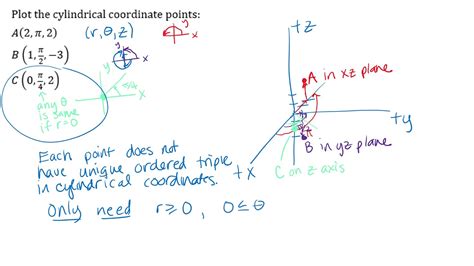 Plot the cylindrical coordinate points:
A(2, π, 2)
(r, θ, z)
B (1, π/2, −3)
C (0, π/4, 2)
any θ
is same
if r=0
y
x
y
x
π/4
y
x
+z
A in xz plane
+y
B in yz plane
C on z-axis
+x
Each point does not
have unique ordered triple
in cylindrical coordinates.
Only need r≥0, 0≤θ